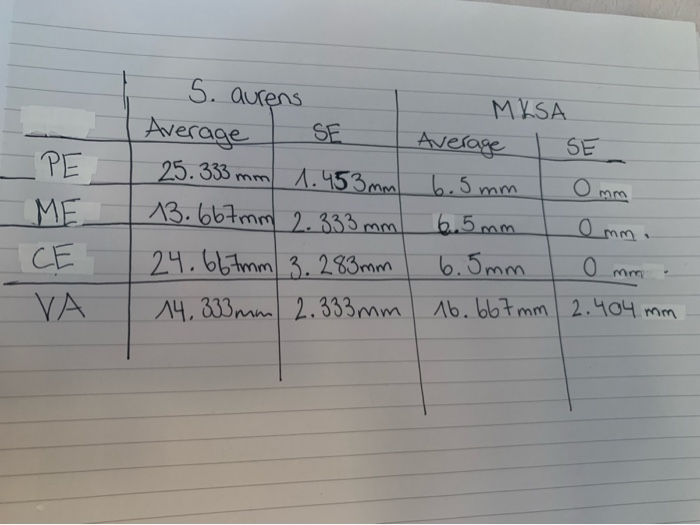 S. aurens MKSA
Average SE Average SE
PE 25.333 mm 1.453mm 6.5 mm 0 mm
ME 13.667mm 2.333 mm 6.5 mm 0 mm.
CE 24.667mm 3.283mm 6.5mm 0 mm.
VA 14.333mm 2.333mm 16.667mm 2.404 mm